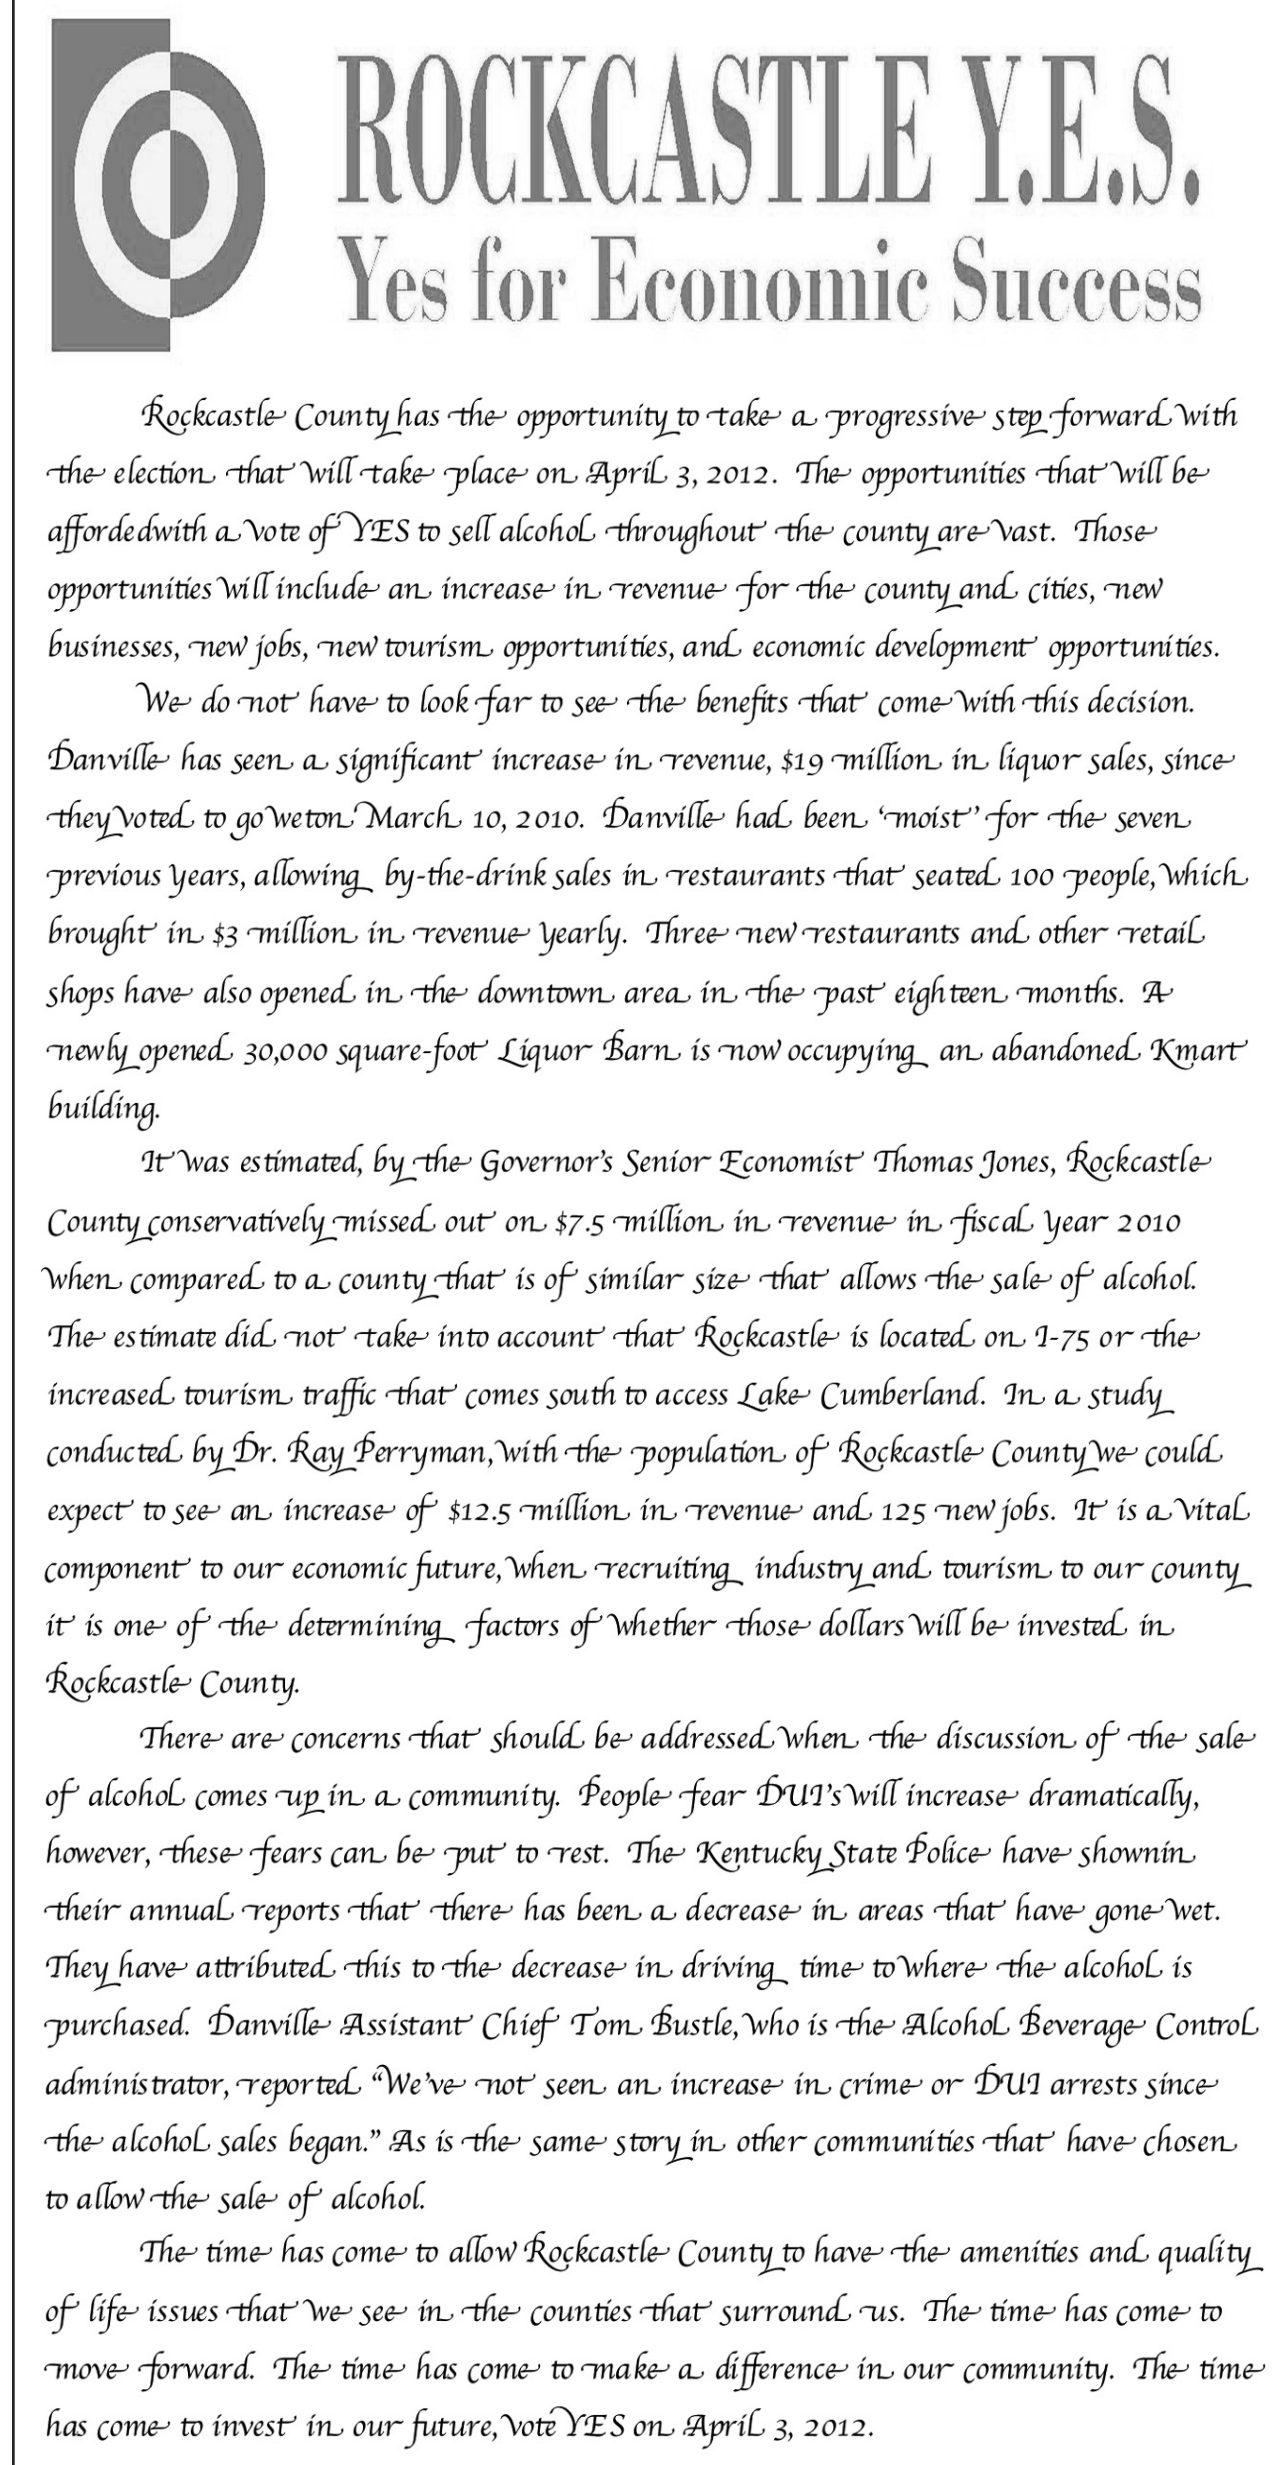 ROCKCASTLE Y.E.S.
Yes for Economic Success
Rockcastle County has the opportunity to take a progressive step forward with
the election that will take place on April 3, 2012. The opportunities that will be
affordedwith a vote of YES to sell alcohol throughout the county are vast. Those
opportunities will include an increase in revenue for the county and cities, new
businesses, new jobs, new tourism opportunities, and economic development opportunities.
We do not have to look far to see the benefits that come with this decision.
Danville has seen a significant increase in revenue, $19 million in liquor sales, since
they voted to go weton March 10, 2010. Danville had been ‘moist’ for the seven
previous years, allowing by-the-drink sales in restaurants that seated 100 people, which
brought in $3 million in revenue yearly. Three new restaurants and other retail
shops have also opened in the downtown area in the past eighteen months. A
newly opened 30,000 square-foot Liquor Barn is now occupying an abandoned Kmart
building.
It was estimated, by the Governor's Senior Economist Thomas Jones, Rockcastle
County conservatively missed out on $7.5 million in revenue in fiscal year 2010
when compared to a county that is of similar size that allows the sale of alcohol.
The estimate did not take into account that Rockcastle is located on I-75 or the
increased tourism traffic that comes south to access Lake Cumberland. In a study
conducted by Dr. Ray Perryman, with the population of Rockcastle County we could
expect to see an increase of $12.5 million in revenue and 125 new jobs. It is a vital
component to our economic future, when recruiting industry and tourism to our county
it is one of the determining factors of whether those dollars will be invested in
Rockcastle County.
There are concerns that should be addressed when the discussion of the sale
of alcohol comes up in a community. People fear DUI's will increase dramatically,
however, these fears can be put to rest. The Kentucky State Police have shownin
their annual reports that there has been a decrease in areas that have gone wet.
They have attributed this to the decrease in driving time to where the alcohol is
purchased. Danville Assistant Chief Tom Bustle, who is the Alcohol Beverage Control
administrator, reported “We've not seen an increase in crime or DUI arrests since
the alcohol sales began.” As is the same story in other communities that have chosen
to allow the sale of alcohol.
The time has come to allow Rockcastle County to have the amenities and quality
of life issues that we see in the counties that surround us. The time has come to
move forward. The time has come to make a difference in our community. The time
has come to invest in our future, vote YES on April 3, 2012.